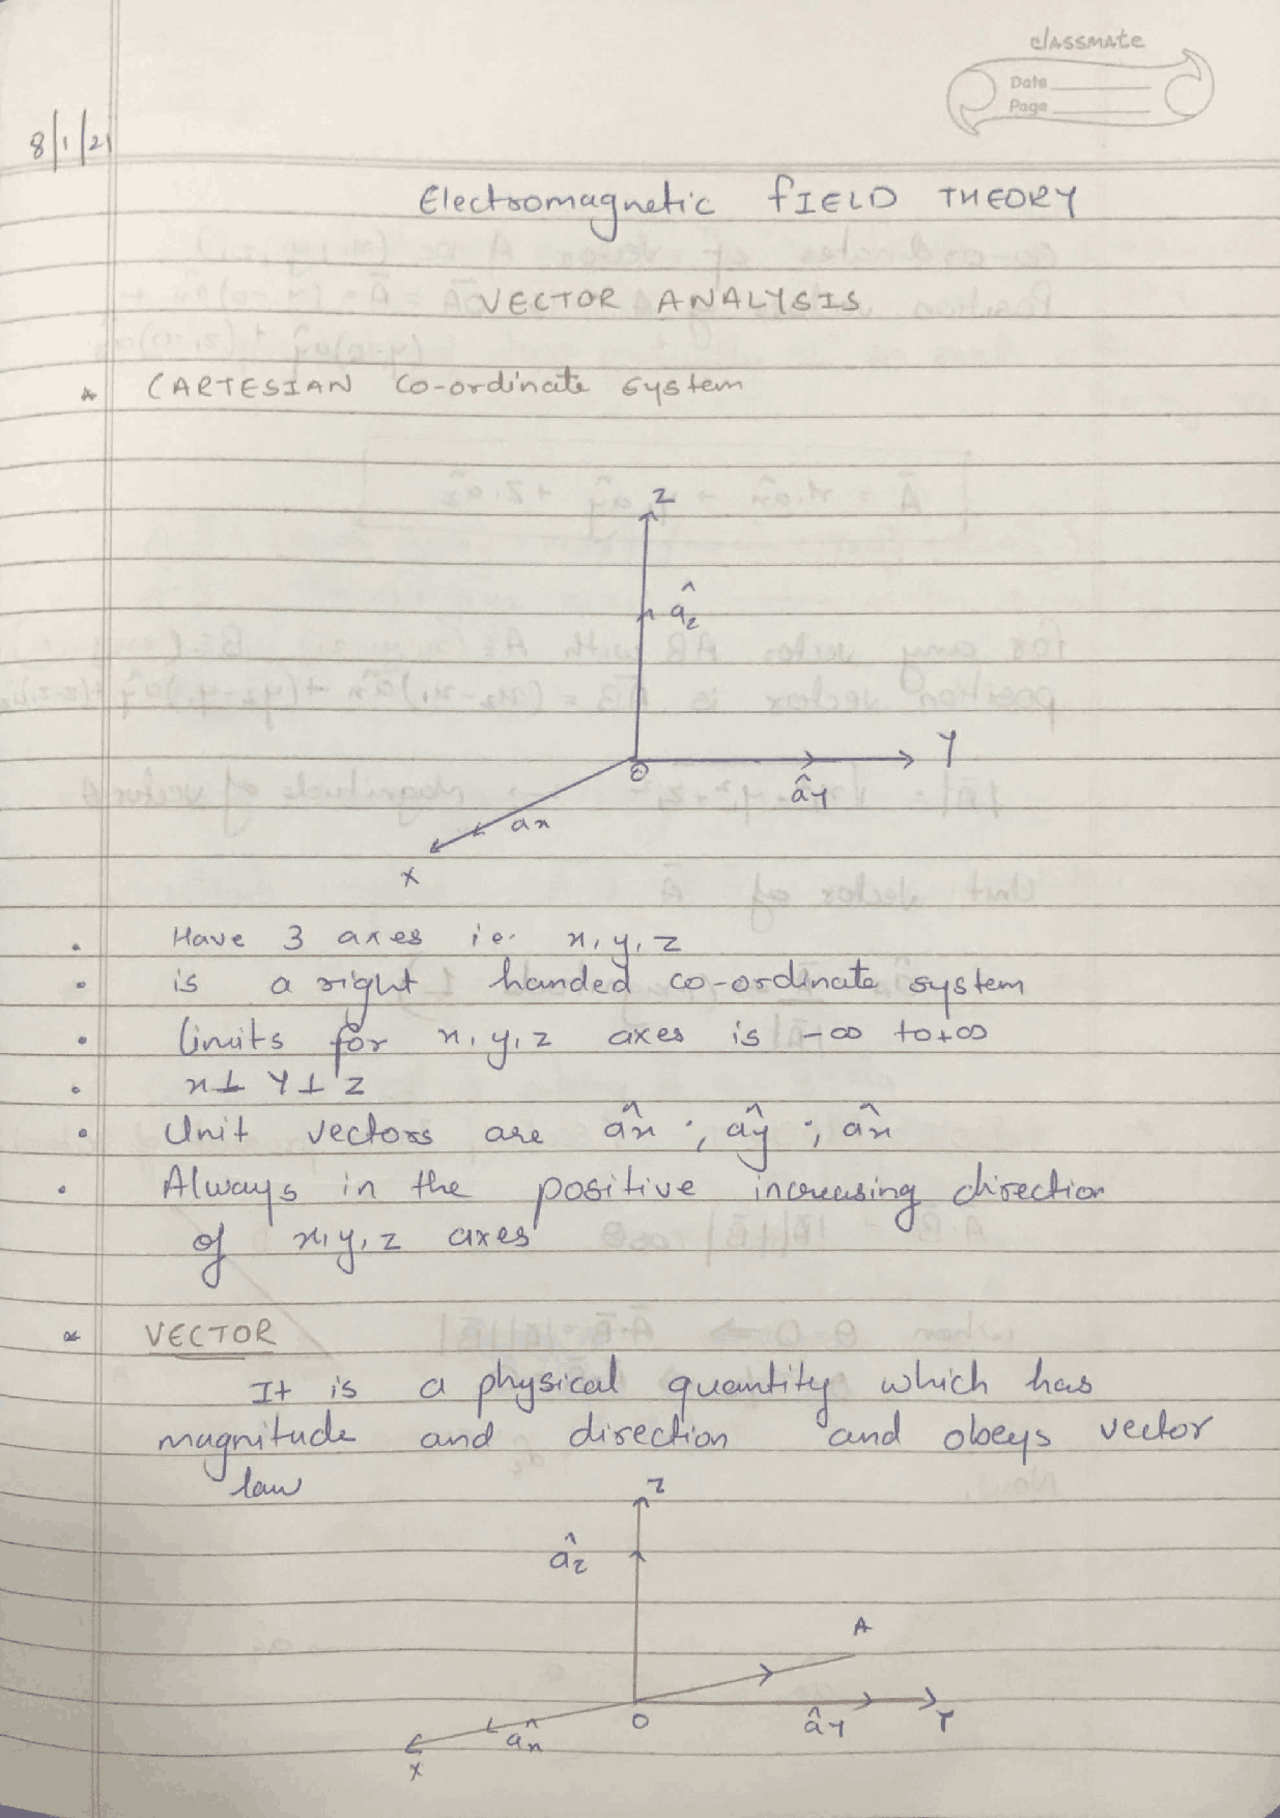 classmate
Date
Page
8/1/21
Electromagnetic FIELD THEORY
VECTOR ANALYSIS
* CARTESIAN Co-ordinate system
Z
âz
O
Y
ây
ax
X
• Have 3 axes i.e. x, y, z
• is a right handed co-ordinate system
• limits for x, y, z axes is -∞ to +∞
• x ⊥ Y ⊥ z
• Unit vectors are âx ; ây ; âx
• Always in the positive increasing direction
of x, y, z axes
* VECTOR
It is a physical quantity which has
magnitude and direction and obeys vector
law
Z
âz
A
O
ây
Y
âx
X